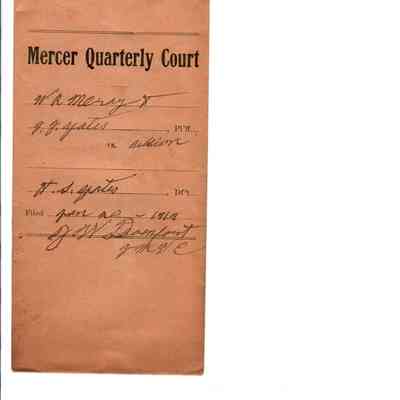 Mercer Quarterly Court
W R Meroy &
J. J. Yates, Pltf.
vs. action
H. S. Yates, Dft.
Filed Jan 20 - 1913
J W Davenport